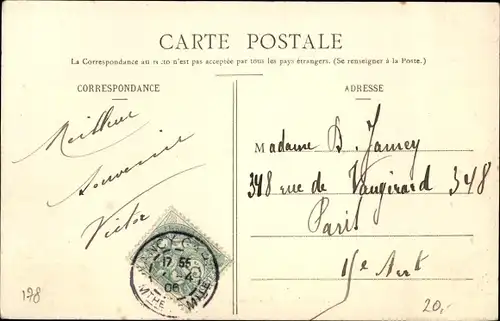 CARTE POSTALE
La Correspondance au recto n'est pas acceptée par tous les pays étrangers. (Se renseigner à la Poste.)
CORRESPONDANCE
ADRESSE
Meilleur
Souvenir
Victor
Madame D. Jamey
348 rue de Vaugirard 348
Paris
15e Arrt
NANCY
17 55
4
06
MTHE
MLLE
178
20,-